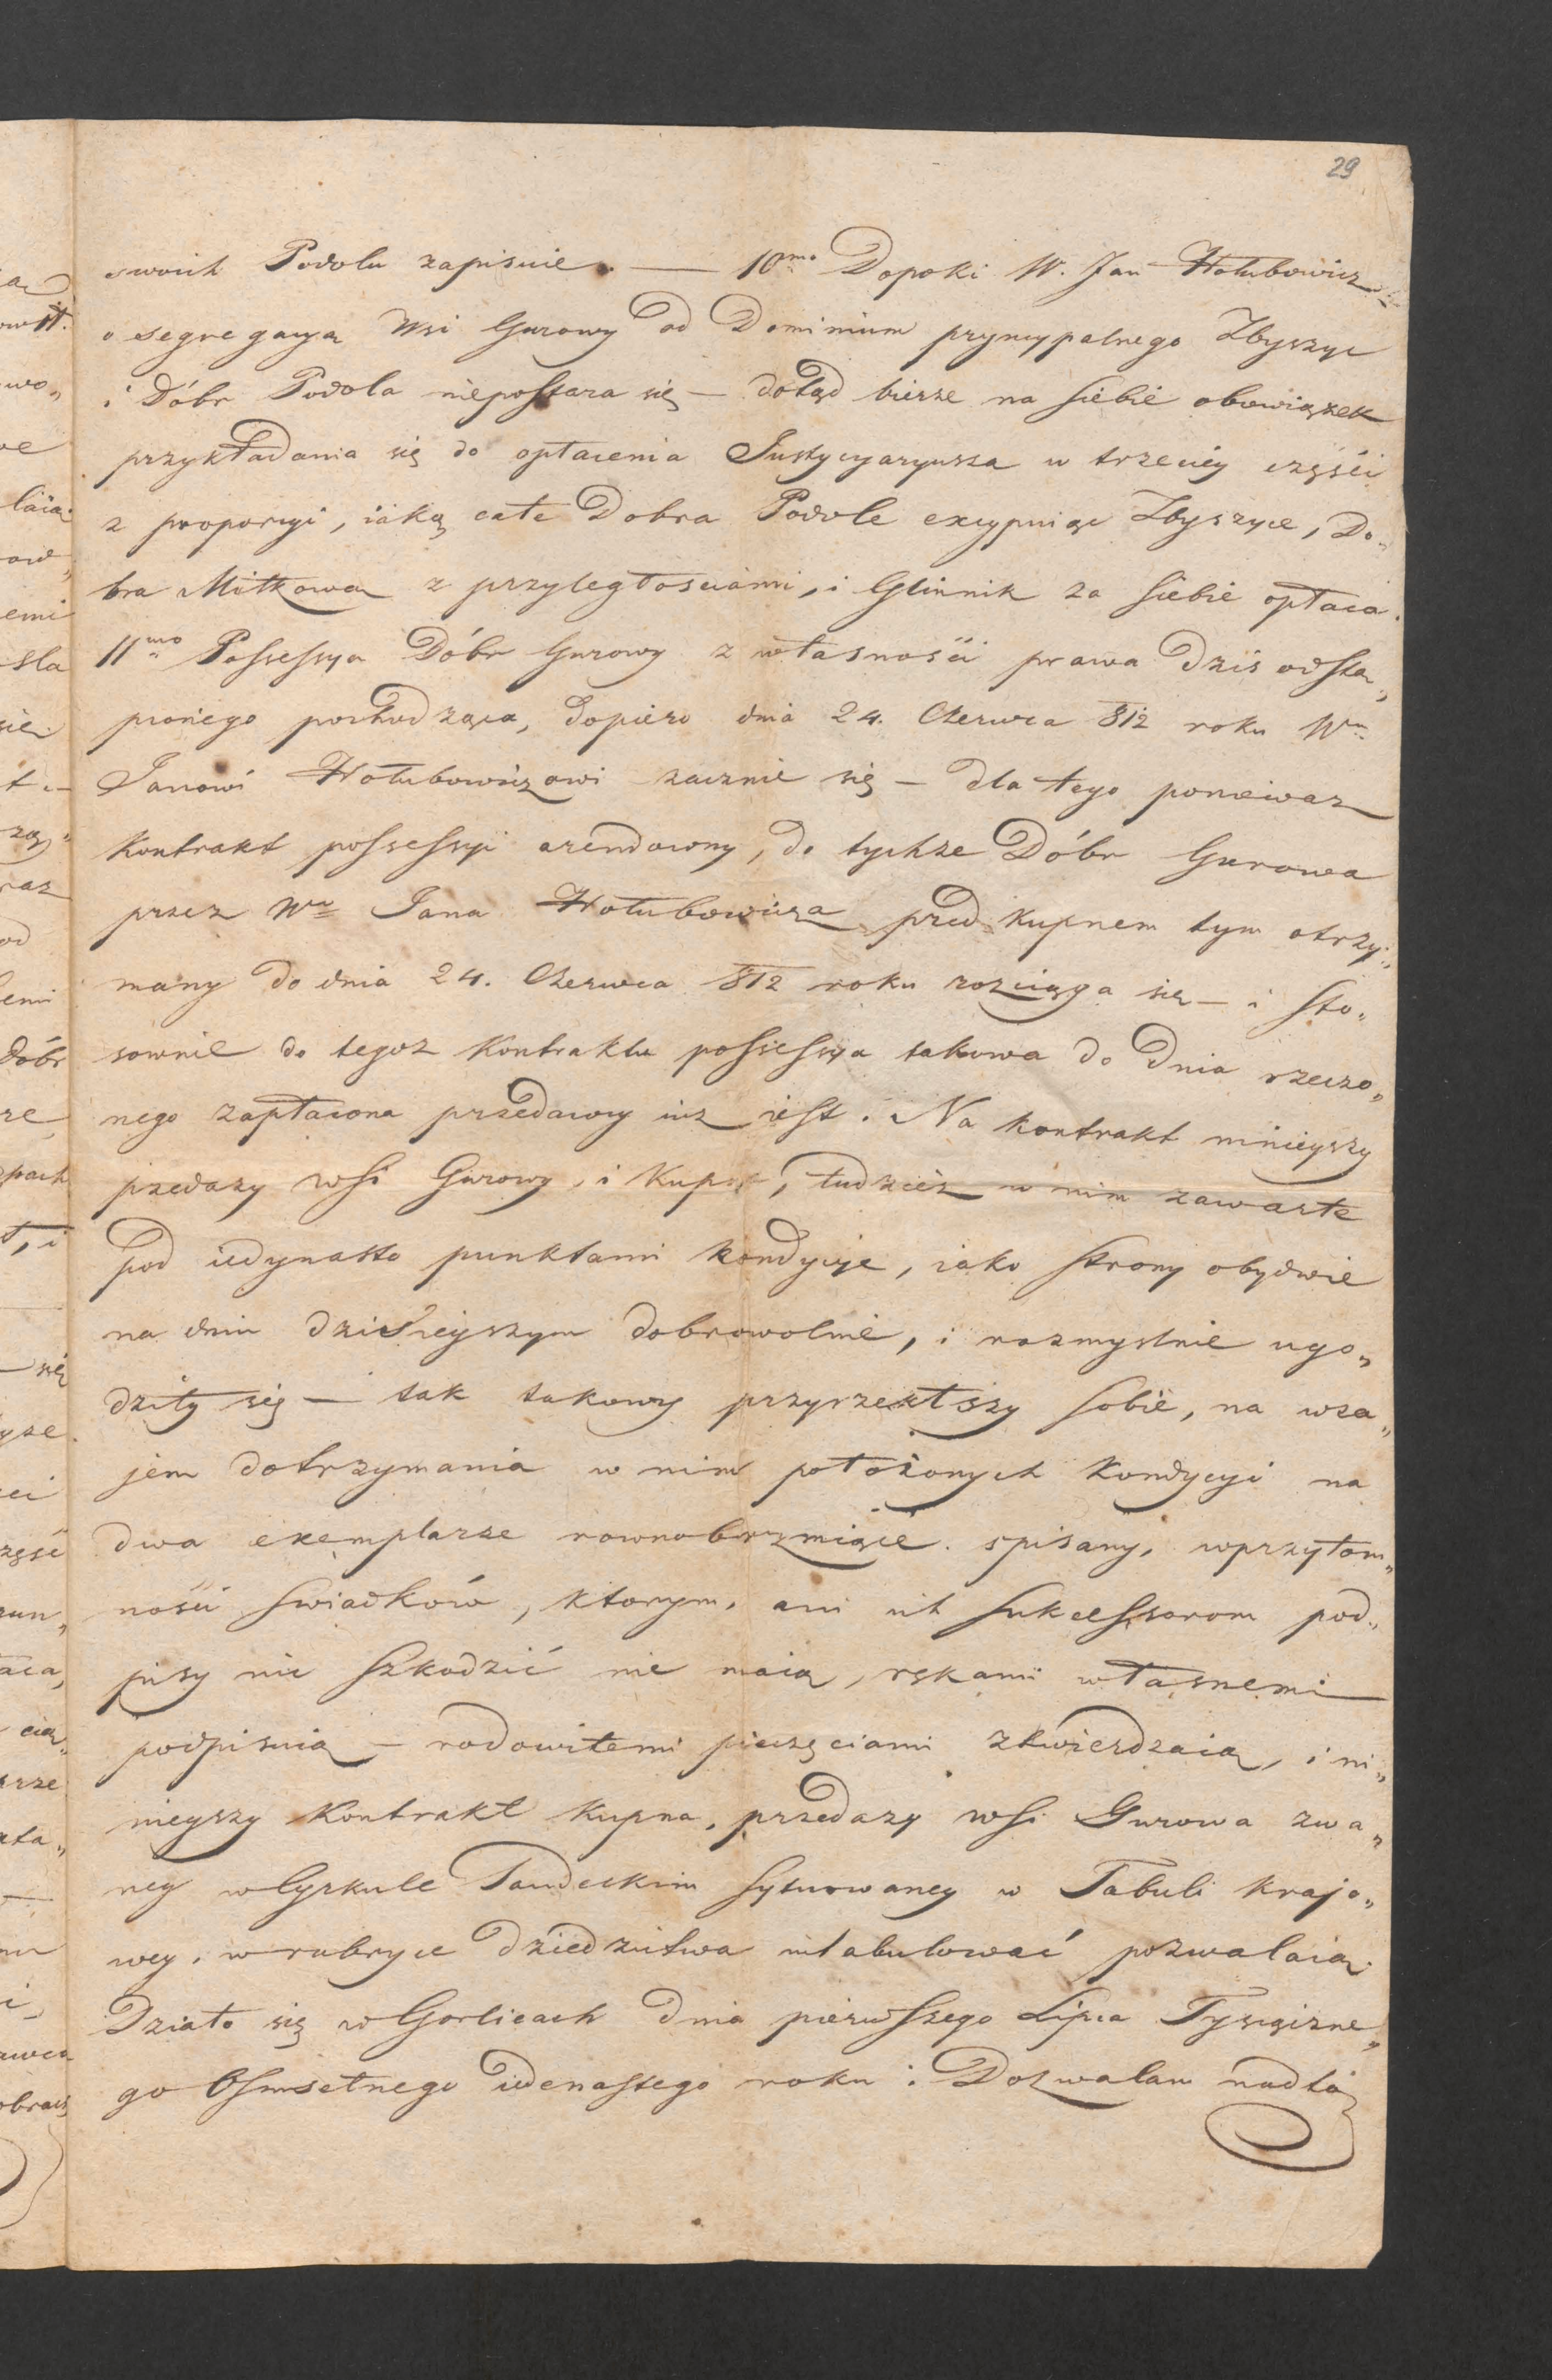 29
swoich Podolu zapisuie. — 10mo Dopoki W. Jan Hołubowicz
o segregacyą Wsi Gurowy od Dominium pryncypalnego Zbyszyc
i Dóbr Podola niepostara się — dotąd bierze na siebie obowiązek
przykładania się do opłacenia Justycyaryusza w trzeciéy części
z proporcyi, iaką całe Dobra Podole excypuiąc Zbyszyce, Do„
bra Miłkowa z przyległościami, i Glinnik za siebie opłaca.
11mo Possessya Dóbr Gurowy z własności prawa dziś odstą„
pionego pochodząca, dopiero dnia 24. Czerwca 812 roku Wu
Janowi Hołubowiczowi zacznie się — dla tego poniewaz
Kontrakt possessyi arendowny, do tychze Dóbr Gurowa
przez Wo Jana Hołubowicza przed kupnem tym otrzy„
many do dnia 24. Czerwca 812 roku rozciąga się — i sto„
sownie do tegoz Kontraktu possessya takowa do Dnia rzeczo„
nego zapłacona przedawcy iuz iest. Na kontrakt ninieyszy
przedazy wsi Gurowy, i Kupna, tudzież w nim zawarte
pod iedynasto punktami kondycye, iako strony obydwie
na dniu dzisieyszym dobrowolnie, i rozmyslnie ugo„
dziły się — tak takowy przyrzekłszy sobie, na wza„
jem dotrzymania w nim położonych Kondycyi na
dwa exemplarze rownobrzmiące spisany, wprzytom„
ności swiadków, ktorym, ani ich sukcessorom pod„
pisy nic szkodzić nie maią, rękami własnemi
podpisuią — rodowitemi pieczęciami ztwierdzaią, i ni„
nieyszy Kontrakt kupna, przedazy wsi Gurowa zwa„
ney w Cyrkule Sandeckim sytuowaney w Tabuli krajo„
wey, w rubryce dziedzictwa intabulować pozwalaią.
Działo się w Gorlicach dnia pierwszego Lipca Tysiączne„
go Osmsetnego iedenastego roku. Dozwalam nadto